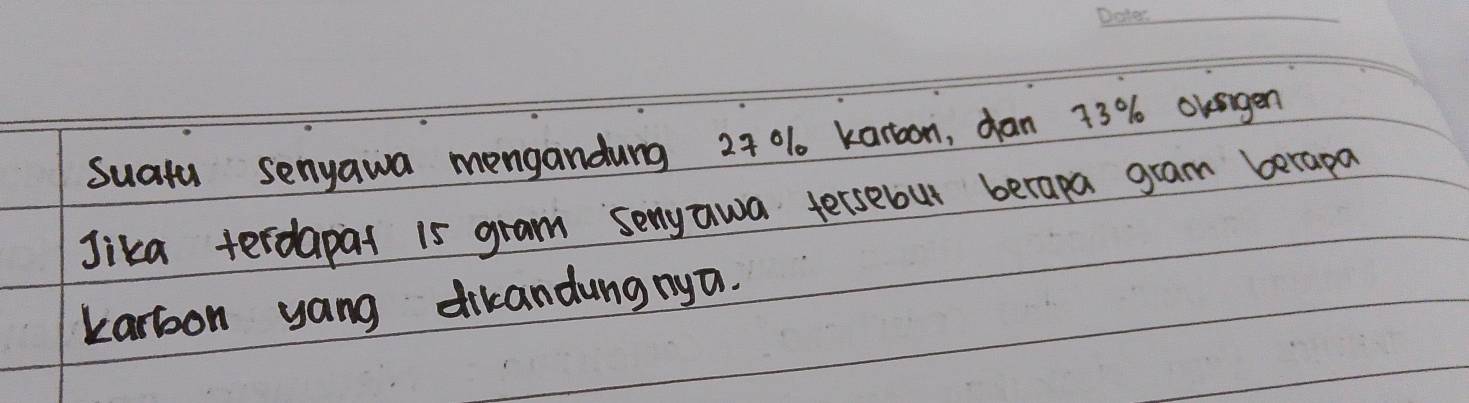 Date:
Suatu senyawa mengandung 27% karbon, dan 73% oksigen
Jika terdapat 15 gram senyawa tersebut berapa gram berapa
karbon yang dikandungnya.